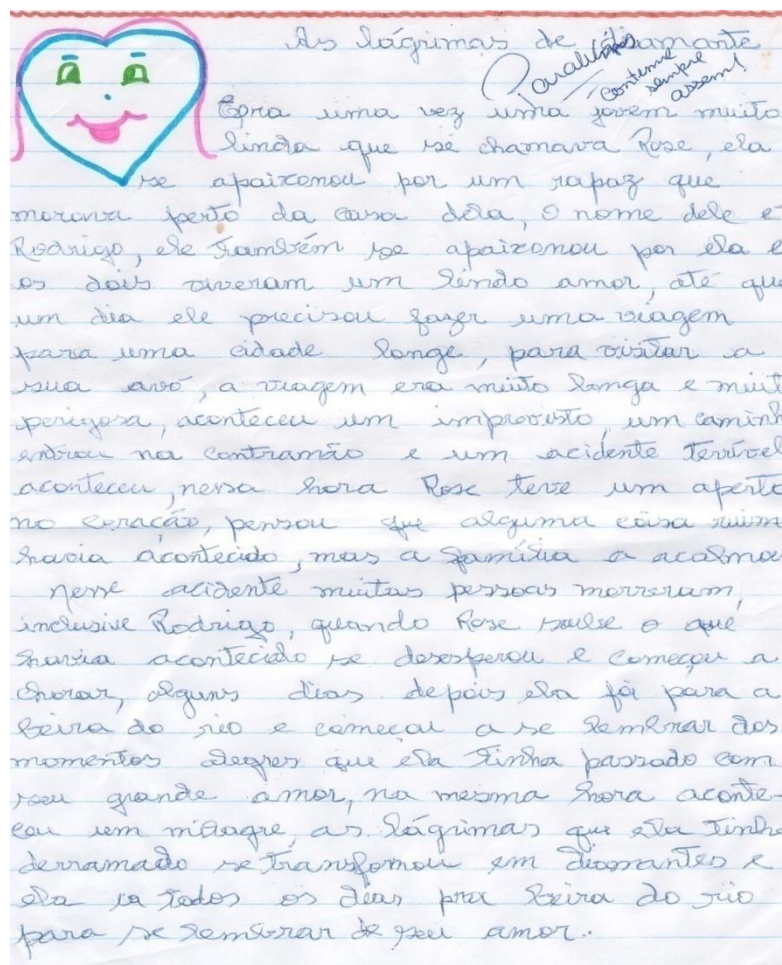 As lágrimas de diamante
Parabéns
Continue
sempre
assim!
Era uma vez uma jovem muito
linda que se chamava Rose, ela
se apaixonou por um rapaz que
morava perto da casa dela, o nome dele e
Rodrigo, ele também se apaixonou por ela e
os dois viveram um lindo amor, até que
um dia ele precisou fazer uma viagem
para uma cidade longe, para visitar a
sua avó, a viagem era muito longa e muit
perigosa, aconteceu um imprevisto, um caminh
entrou na contramão e um acidente terrível
aconteceu, nessa hora Rose teve um aperto
no coração, pensou que alguma coisa ruim
havia acontecido, mas a família a acalmou
nesse acidente muitas pessoas morreram,
inclusive Rodrigo, quando Rose soube o que
havia acontecido se desesperou e começou a
chorar, alguns dias depois ela foi para a
beira do rio e começou a se lembrar dos
momentos alegres que ela tinha passado com
seu grande amor, na mesma hora aconte-
ceu um milagre, as lágrimas que ela tinha
derramado se transfomou em diamantes e
ela ia todos os dias pra beira do rio
para se lembrar de seu amor.